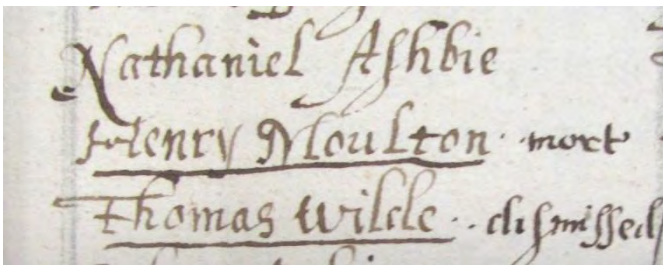 Nathaniel Ashbie
Henry Moulton · mort
Thomas Wilde · dismissed